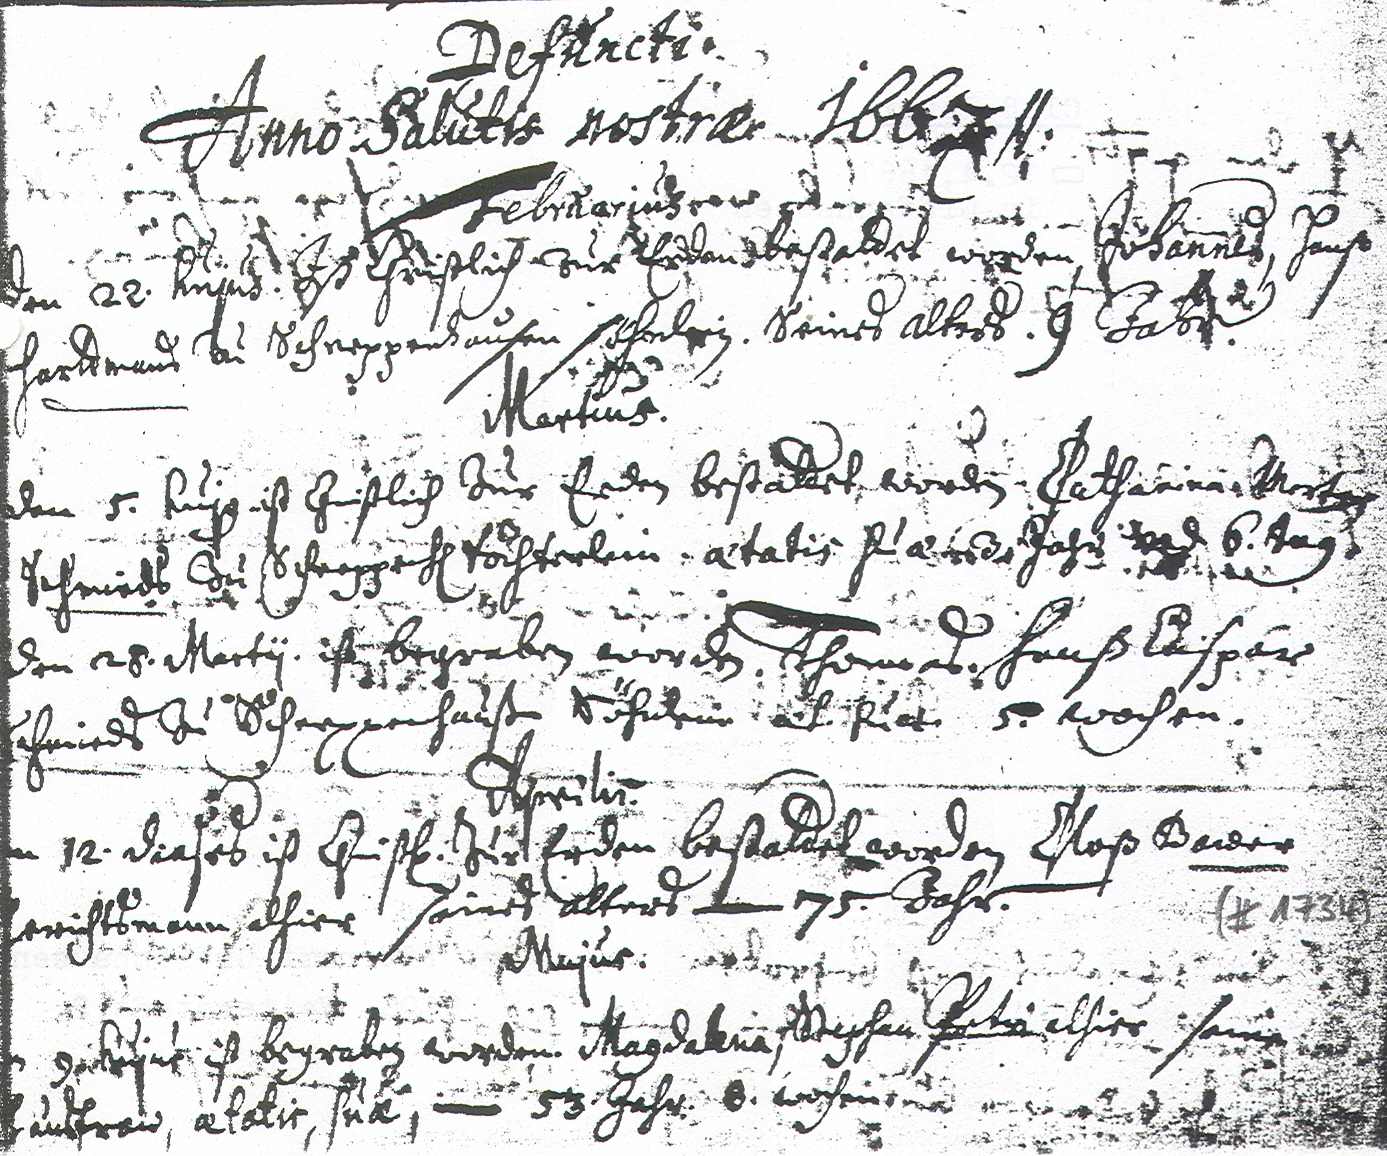 Defuncti.
Anno Salutis nostræ 1667
Februarius
den 22. hujus. Ist Christlich zur Erden bestattet worden, Johannes, Hanß
Hartmans zu Schneppenhausen söhnlein. Seines alters. 9 Jahr.
Martius.
den 5. huj9 ist Christlich zur Erden bestattet worden Catharina
Schmieds zu Schneppenh. töchterlein. ætatis suæ Jahr und 6. tag.
den 28. Martij. ist begraben worden. Thomas. Hanß Caspar
schmieds zu Schneppenhaußen Söhnlein æt. suæ. 5. wochen.
Aprilis.
12. dieses ist Christl. zur Erden bestattet worden Cloß Bawer
Gerichtsmann alhier seines alters — 75. Jahr.
(# 1734)
Majus.
9. hujus ist begraben worden. Magdalena, Stephan Petri alhier seine
haustraw, ætatis, suæ, — 53 Jahr. 8. wochen